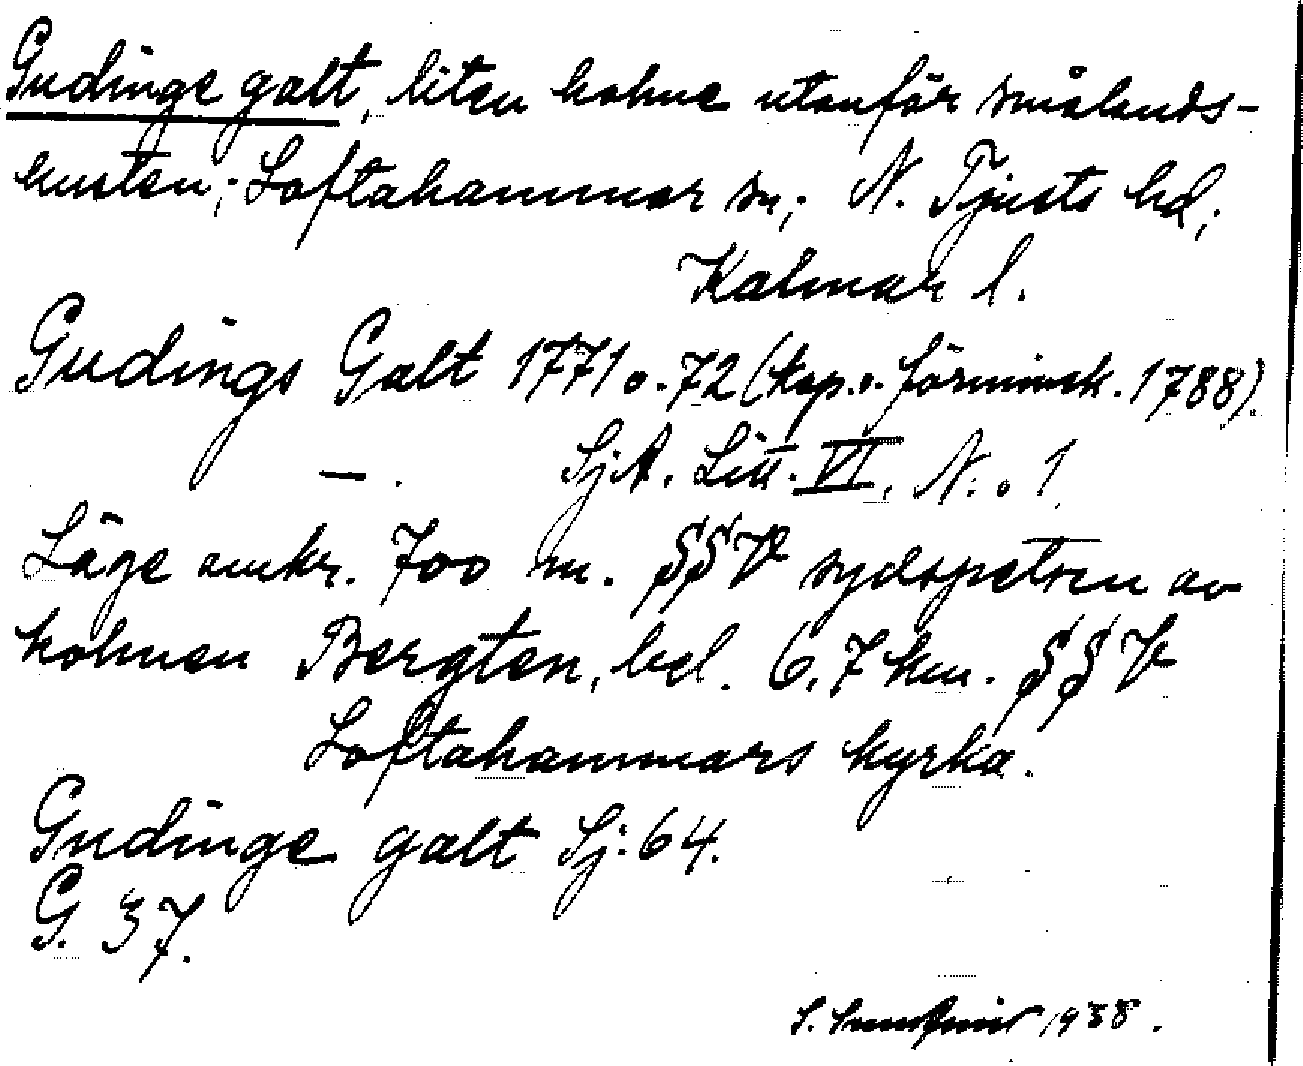 Gudinge galt, liten holme utanför smålands-
kusten; Loftahammar sn; N. Tjusts hd;
Kalmar l.
Gudings Galt 1771 o. 72 (kop. o. förminsk. 1788).
— . SjA. Litt. VI, N:o 1
Läge omkr. 700 m. SSV sydspetsen av
holmen Bergten, bel. 6,7 km. SSV
Loftahammars kyrka.
Gudinge galt Sj: 64.
G. 37.
S. 1938.